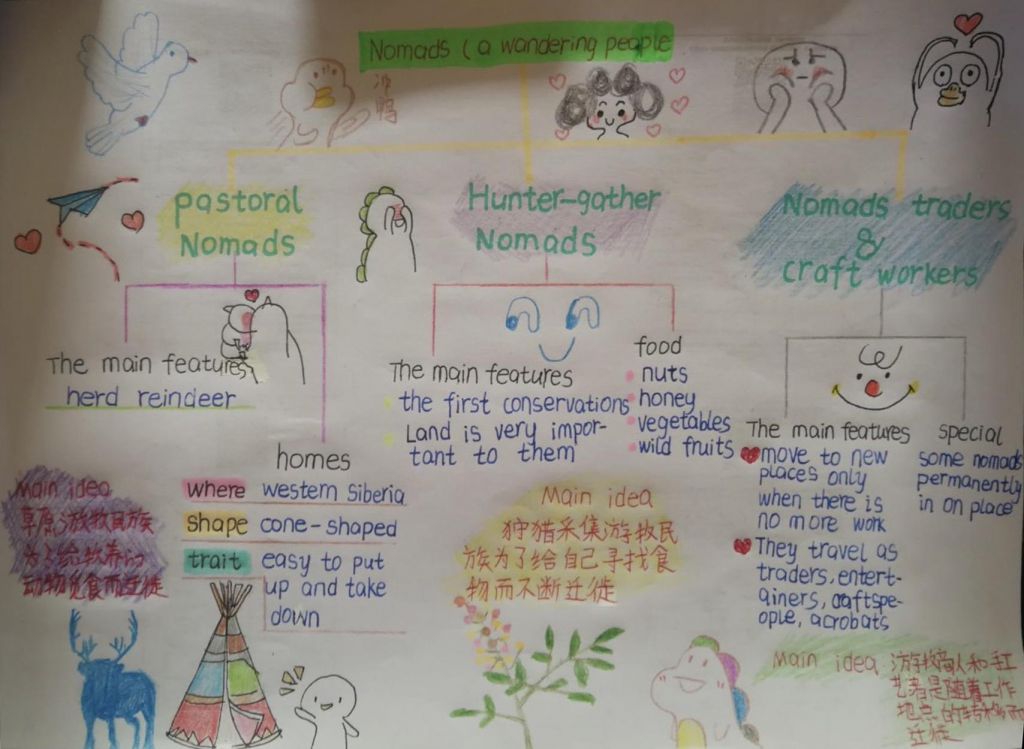 Nomads (a wandering people
pastoral
Nomads
Hunter-gather
Nomads
Nomads traders
&
craft workers
The main features
herd reindeer
homes
where western Siberia
shape cone-shaped
trait easy to put
up and take
down
Main idea
草原游牧民族
为了给牧养的
动物觅食而迁徙
The main features
the first conservations
Land is very impor-
tant to them
food
nuts
honey
vegetables
wild fruits
Main idea
狩猎采集游牧民
族为了给自己寻找食
物而不断迁徙
The main features
move to new
places only
when there is
no more work
They travel as
traders, entert-
ainers, craftspe-
ople, acrobats
special
some nomads
permanently
in on place
Main idea 游牧商人和手工
艺者是随着工作
地点的转移而
迁徙